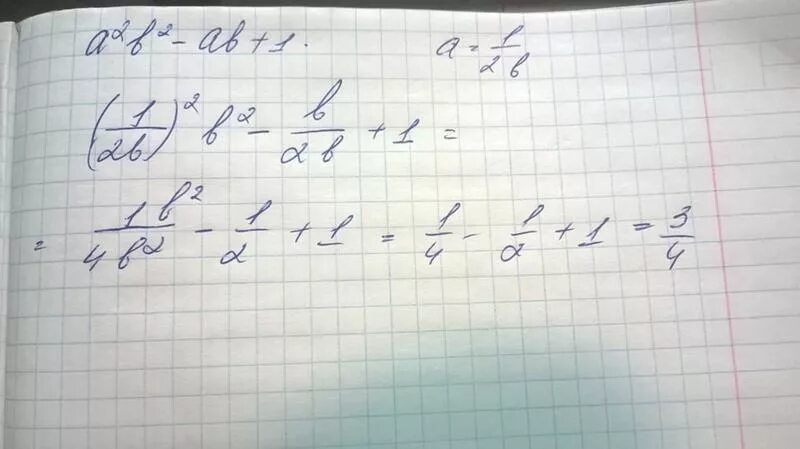 a²b² - ab + 1. a = 1/2b
(1/2b)² b² - b/2b + 1 =
= 1b²/4b² - 1/2 + 1 = 1/4 - 1/2 + 1 = 3/4